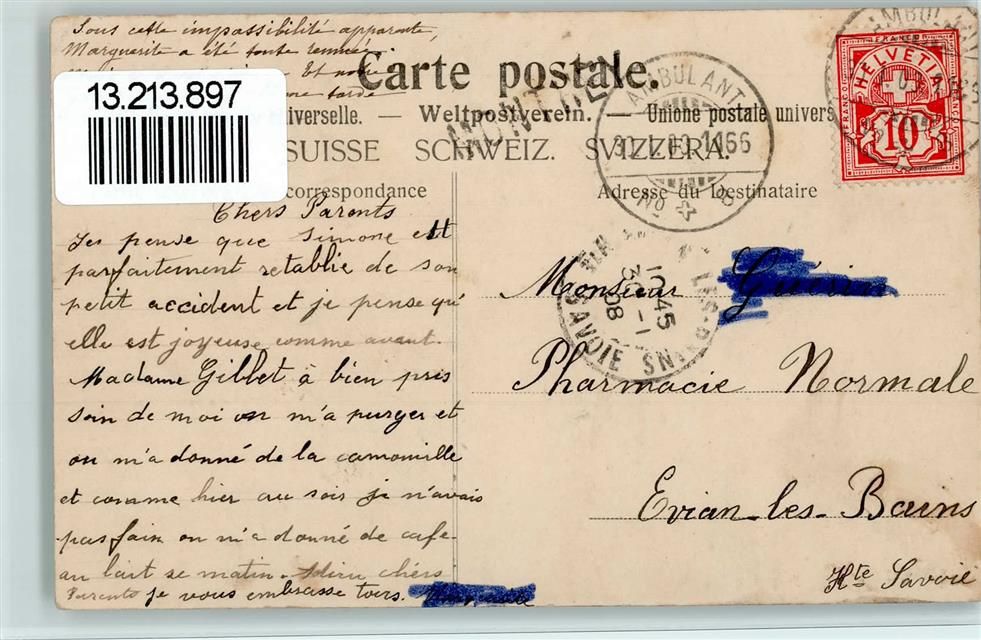 Sous cette impassibilité apparente,
Marguerite a été toute remuée.
Et
tarde
13.213.897
Carte postale.
MONTREUX
iverselle. — Weltpostverein. — Unione postale univers
SUISSE SCHWEIZ. SVIZZERA.
correspondance
Adresse du Destinataire
AMBULANT
1466
No
AMBULANT
FRANCO
HELVETIA
FRANCO
FRANCO
10
10 45
30 -1
08
SAVOIE
Chers Parents
Jes pense que Simone est
parfaitement retablie de son
petit accident et je pense qu'
elle est joyeuse comme avant.
Madame Gillet à bien pris
soin de moi on m'a purger et
on m'a donné de la camomille
et comme hier au soir je n'avais
pas faim on m'a donné de cafe
au lait se matin. Adieu chérs
Parents je vous embrasse tous.
Monsieur Guérin
Pharmacie Normale
Evian-les-Bains
Hte Savoie